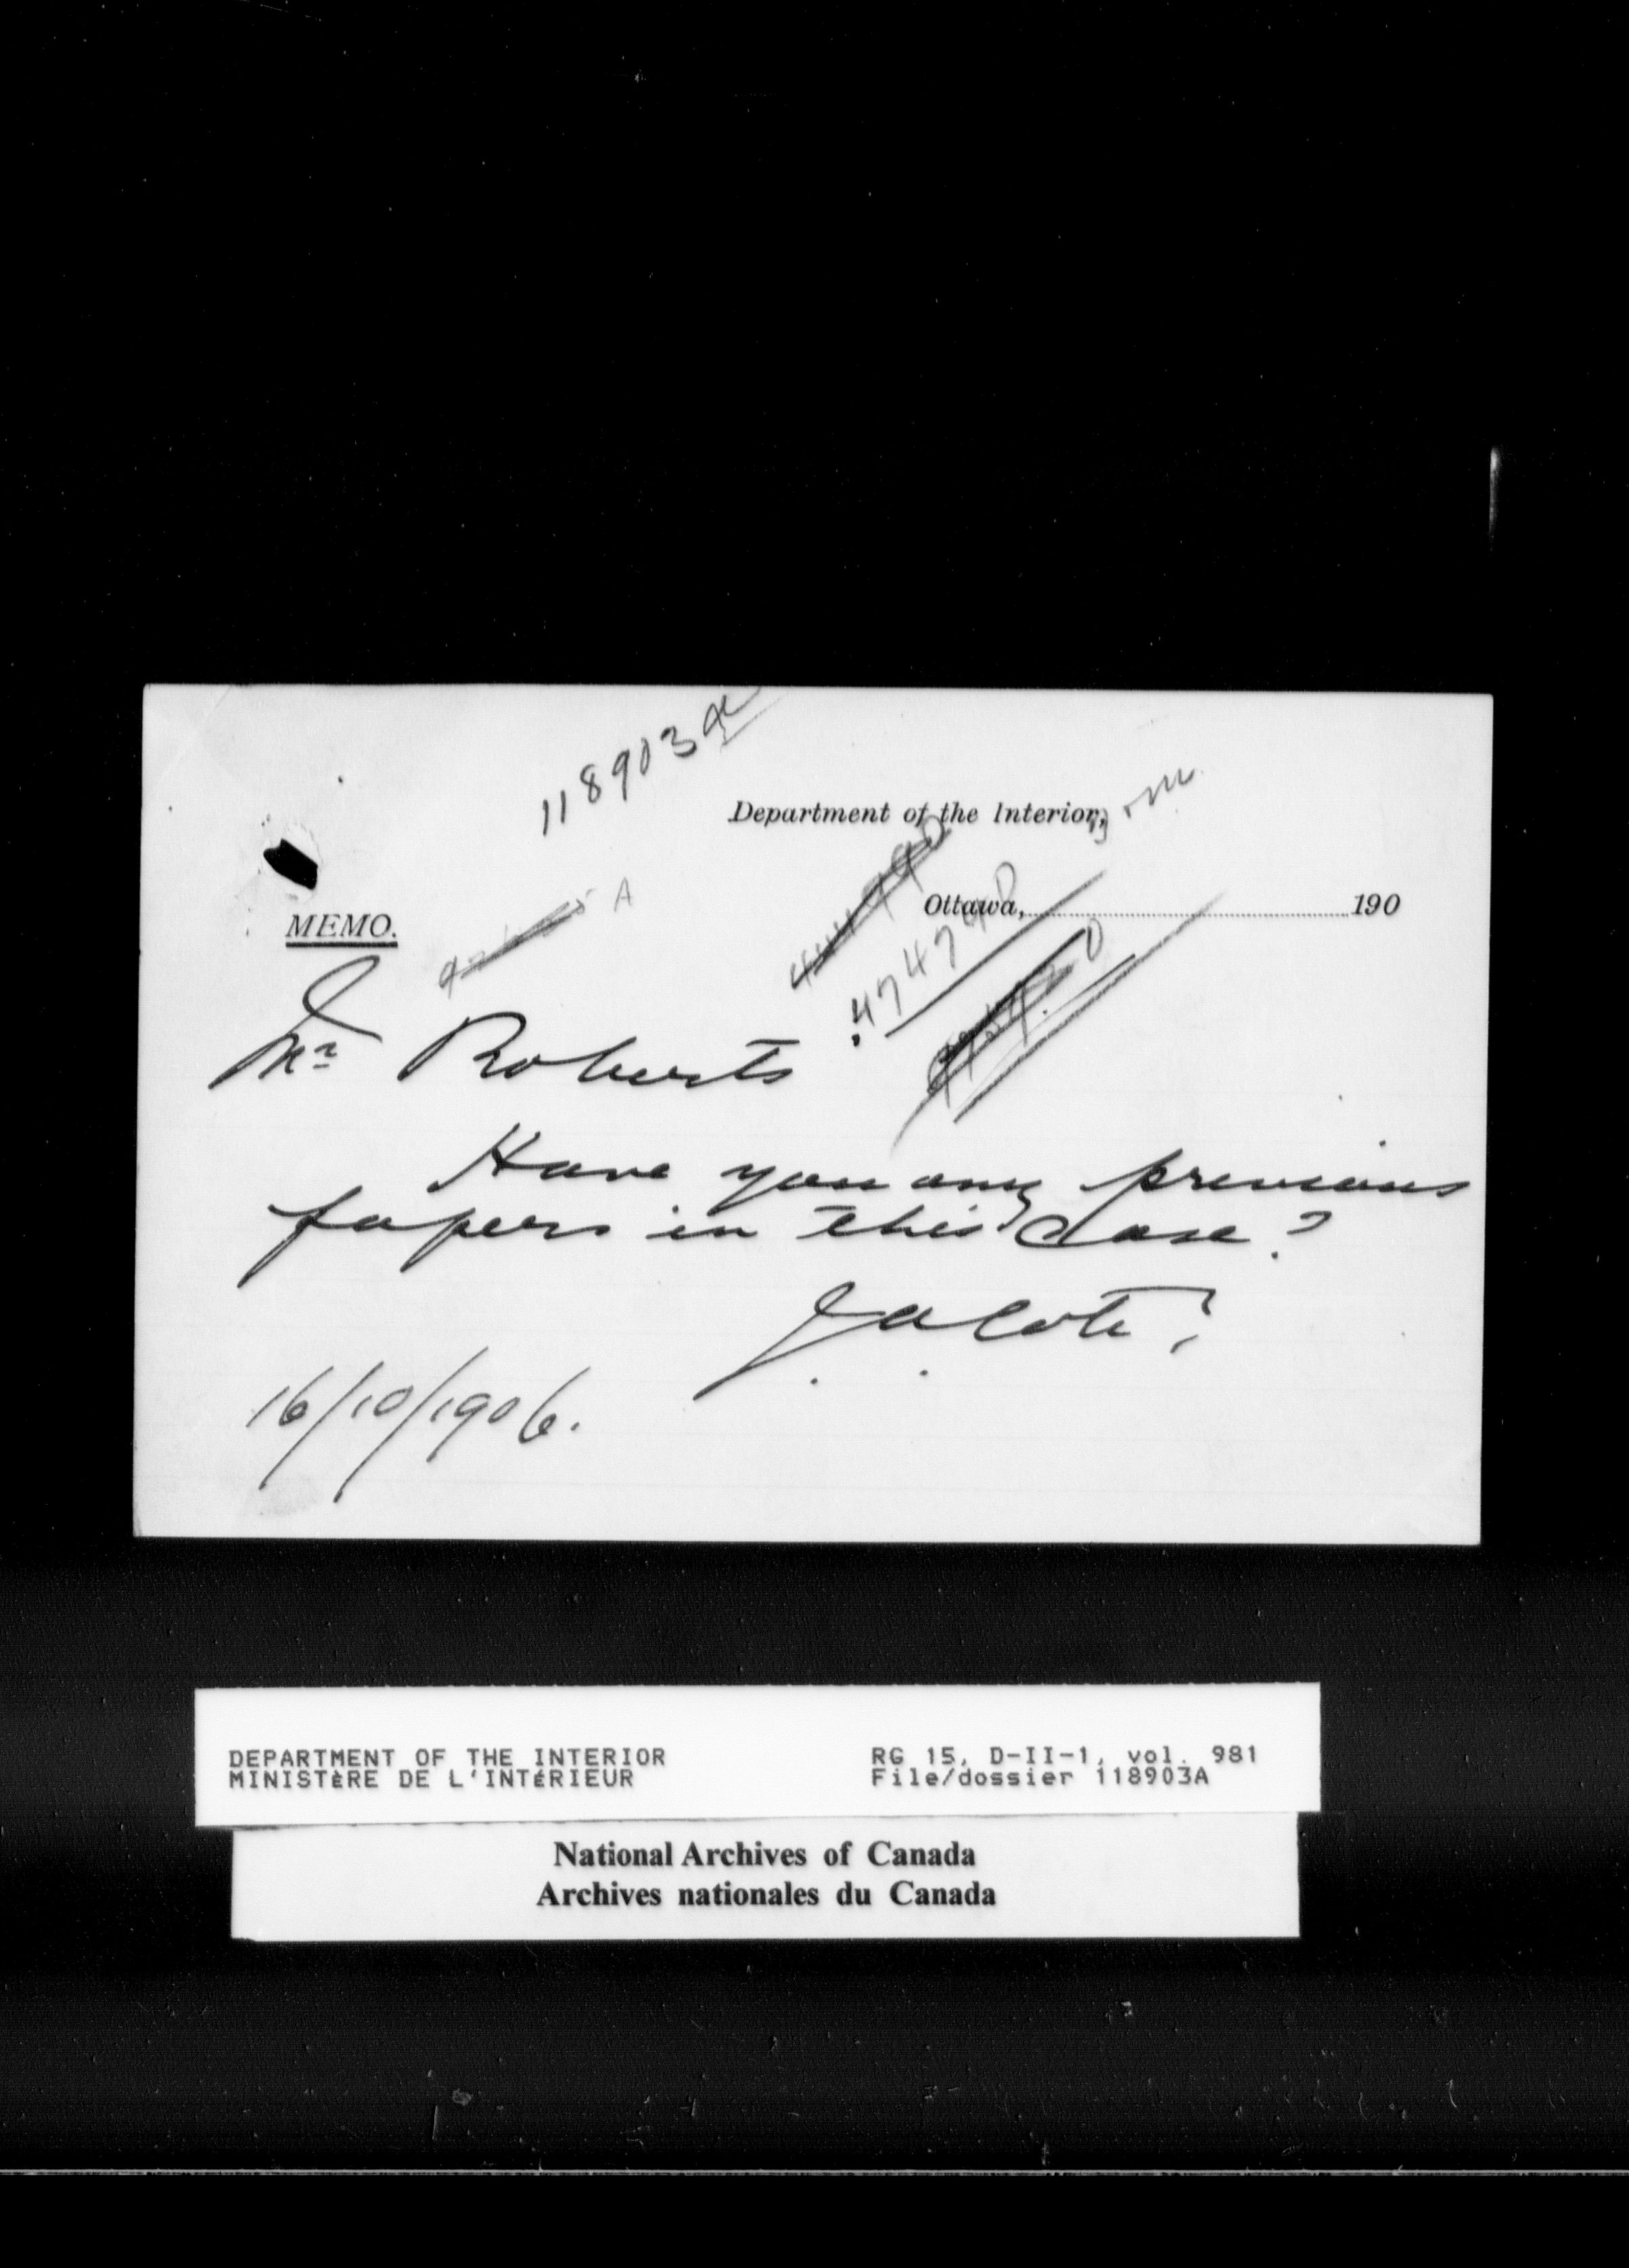 118903a
Department of the Interior,
Ottawa, 190
MEMO.
A
474790
Mr Roberts
Have you any previous
papers in this case?
JaCote
16/10/1906.
DEPARTMENT OF THE INTERIOR
MINISTÈRE DE L'INTÉRIEUR
RG 15, D-II-1, vol. 981
File/dossier 118903A
National Archives of Canada
Archives nationales du Canada